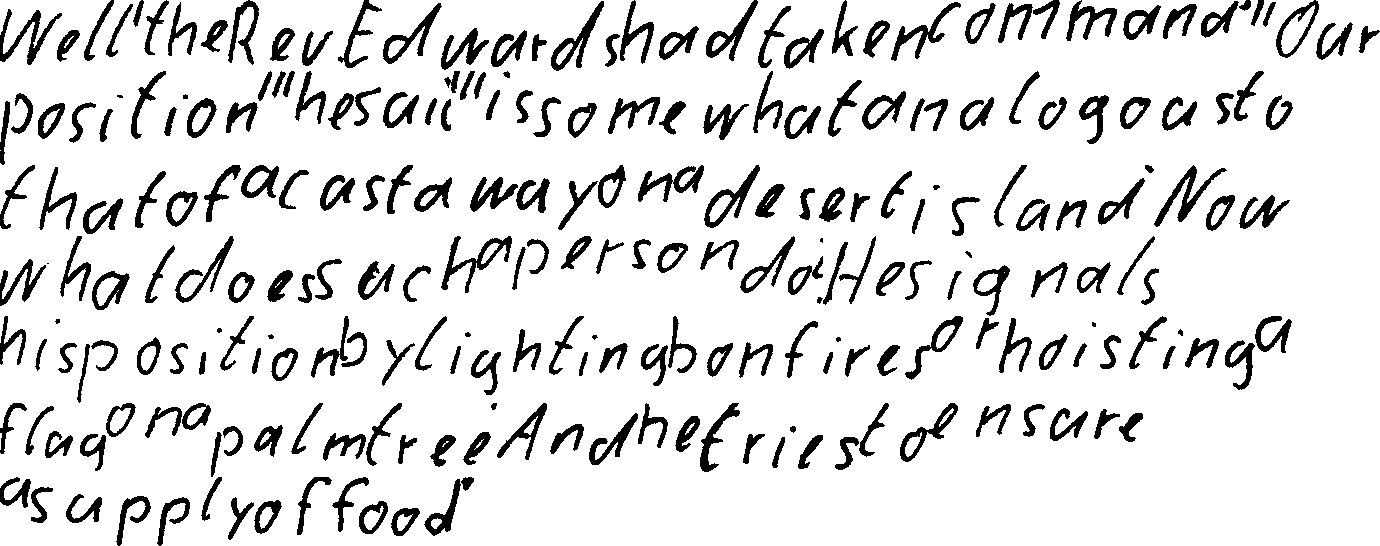 Well' the Rev. Edwards had taken command. " Our
position " " he said " " is somewhat analogous to
that of a castaway on a desert island. Now
what does such a person do? He signals
his position by lighting bonfires or hoisting a
flag on a palm tree. And he tries to ensure
a supply of food.